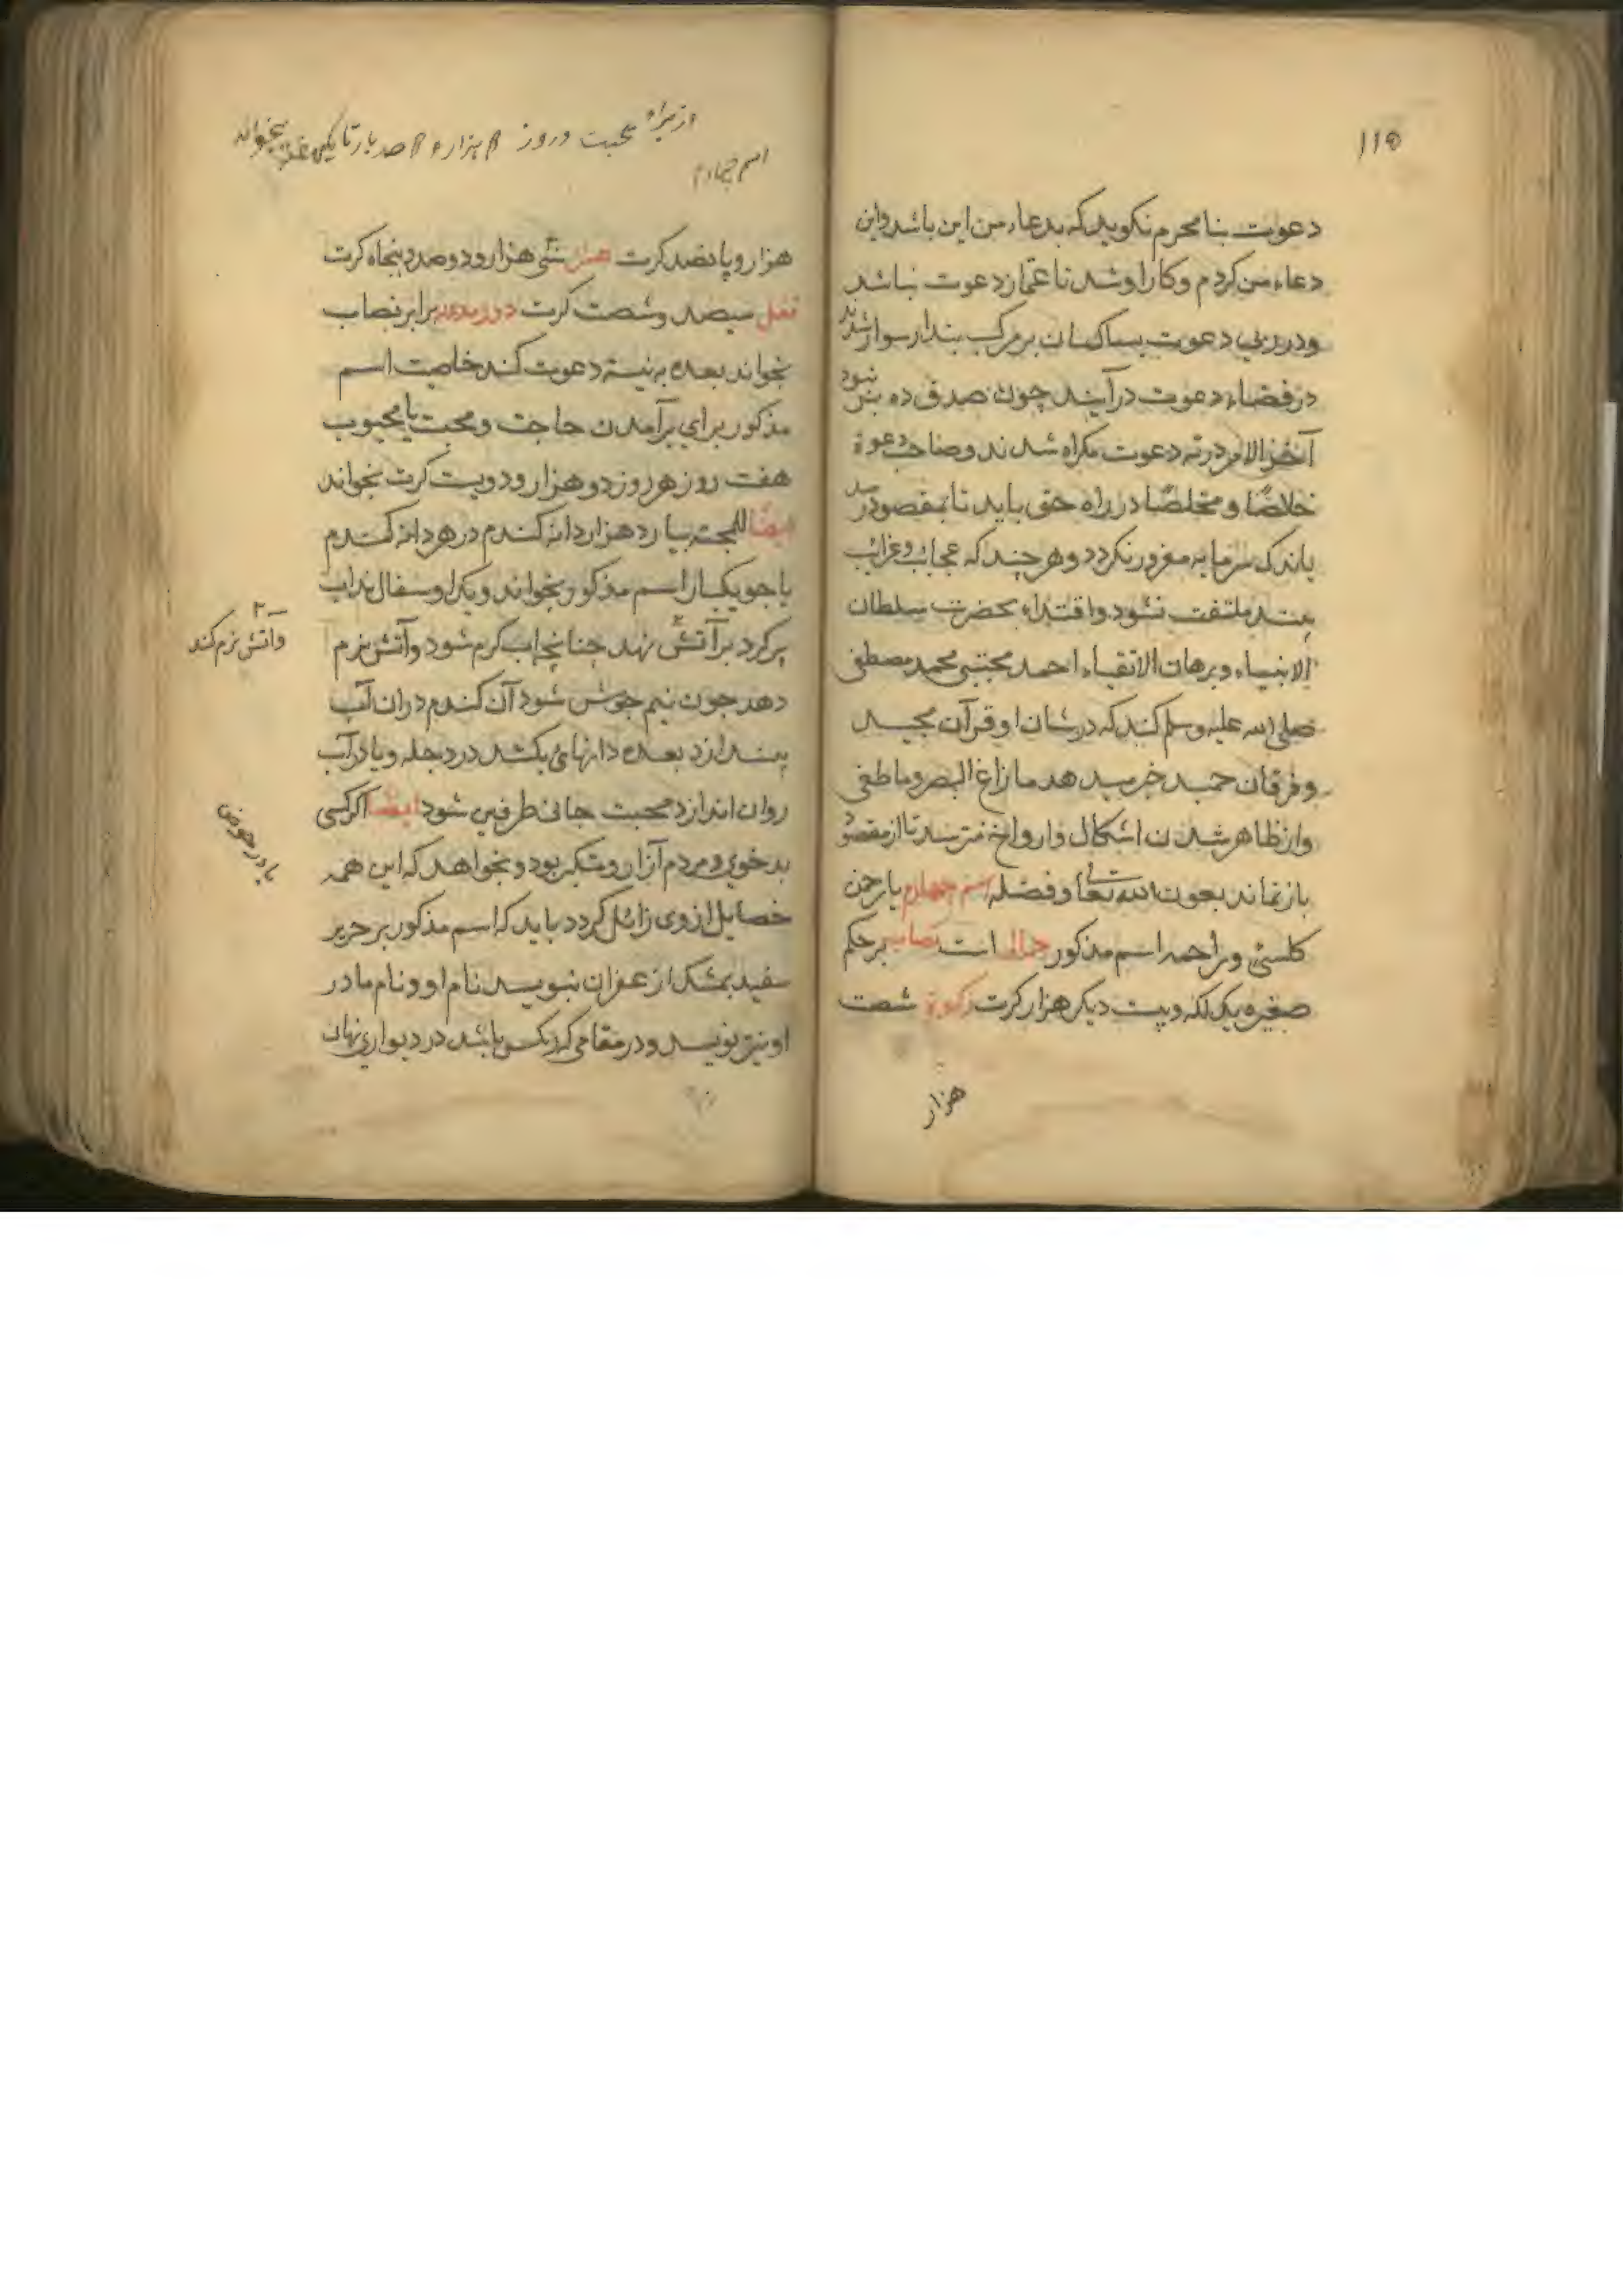 ١١٥
دعوت بنا محرم نکوید که بدعاء من این باشد واین
دعاء من کردم وکار او شد تا غماز دعوت نباشد
ودر پی دعوت بسا کسان بر مرکب پندار سوار شدند
در فضاء دعوت درآیند چون صدق ده نبود
آخر الامر در ته دعوت مکراه شدند وصاحب دعوة
خلاصًا و مخلصًا در راه حق باید تا بمقصود رسد
باندک سرمایه مغرور نکردد وهر چند که عجایب وغرائب
بیند ملتفت نشود واقتداء بحضرت سلطان
الانبیاء وبرهان الاتقیاء احمد مجتبی محمد مصطفی
صلی الله علیه وسلم کند که در شان او قرآن مجید
وفرقان حمید خبر میدهد ما زاغ البصر وما طغی
واز ظاهر شدن اشکال وارواح نترسد تا از مقصود
باز نماند بعون الله تعالی وفضله اسم چهارم یا رحمن
کل شئ وراحمه اسم مذکور جمالی است نصاب بر حکم
صغیر ویک لکه وبیست دیکر هزار کرت زکوة شصت
هزار
از برای محبت در روز هزار و صد بار تا یکی بخواند
اسم چهارم
هزار وپانصد کرت عشر سی هزار ودوصد وپنجاه کرت
قفل سیصد وشصت کرت دور مدور برابر نصاب
بخواند بعده به نیت دعوت کند خاصیت اسم
مذکور برای برآمدن حاجت ومحبت با محبوب
هفت روز هر روز دو هزار ودویست کرت بخواند
ایضًا للمحبت بیارد هزار دانه کندم در هر دانه کندم
یا جو یکبار اسم مذکور بخواند ویکد او سفال پر آب
پر کرد بر آتش نهد چنانچه آب کرم شود وآتش نرم
دهد چون نیم جوش شود آن کندم دران آب
بیندازد بعده دانهای بکشد در دجله ویا در آب
روان اندازد محبت جانی طرفین شود ایضًا اکر کسی
بدخوی ومردم آزار ومتکبر بود وبخواهد که این همه
خصایل از وی زائل کردد باید که اسم مذکور بر حریر
سفید بمشک از عفران بنویسد نام او ونام مادر
او نیز بنویسد ودر مقامی که نیکس باشد در دیواری نهان
وآتش نرم کند
یا در حوض